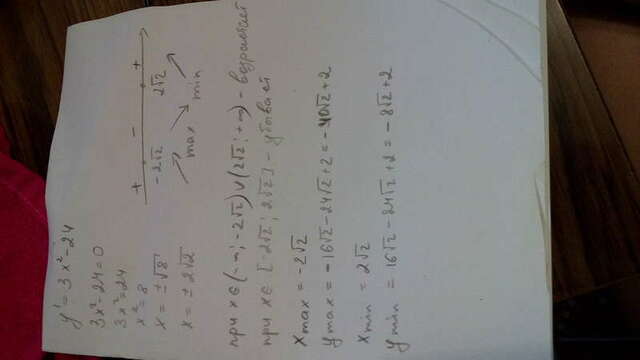 y' = 3x² - 24
3x² - 24 = 0
3x² = 24
x² = 8
x = ±√8
x = ±2√2
+ - +
-2√2 2√2
max min
при x ∈ (-∞; -2√2) ∪ (2√2; +∞) - возрастает
при x ∈ [-2√2; 2√2] - убывает
x max = -2√2
y max = -16√2 - 24√2 + 2 = -40√2 + 2
x min = 2√2
y min = 16√2 - 24√2 + 2 = -8√2 + 2